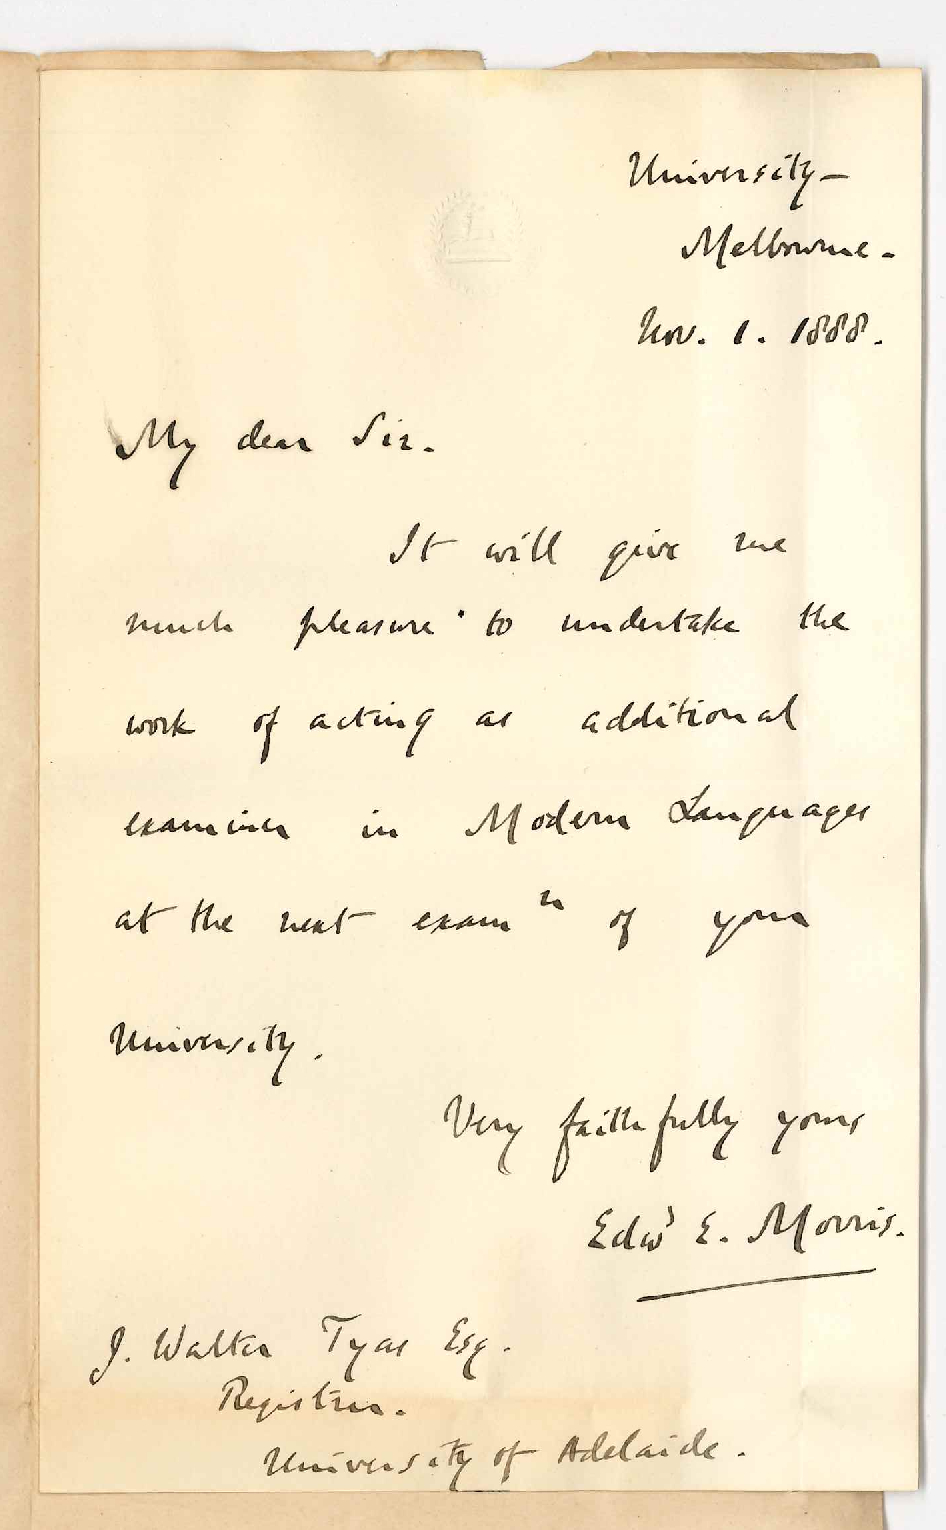 University –
Melbourne.
Nov. 1. 1888.
My dear Sir.
It will give me
much pleasure to undertake the
work of acting as additional
examiner in Modern Languages
at the next examⁿ of your
University.
Very faithfully yours
Edwᵈ E. Morris.
J. Walter Tyas Esq.
Registrar.
University of Adelaide.